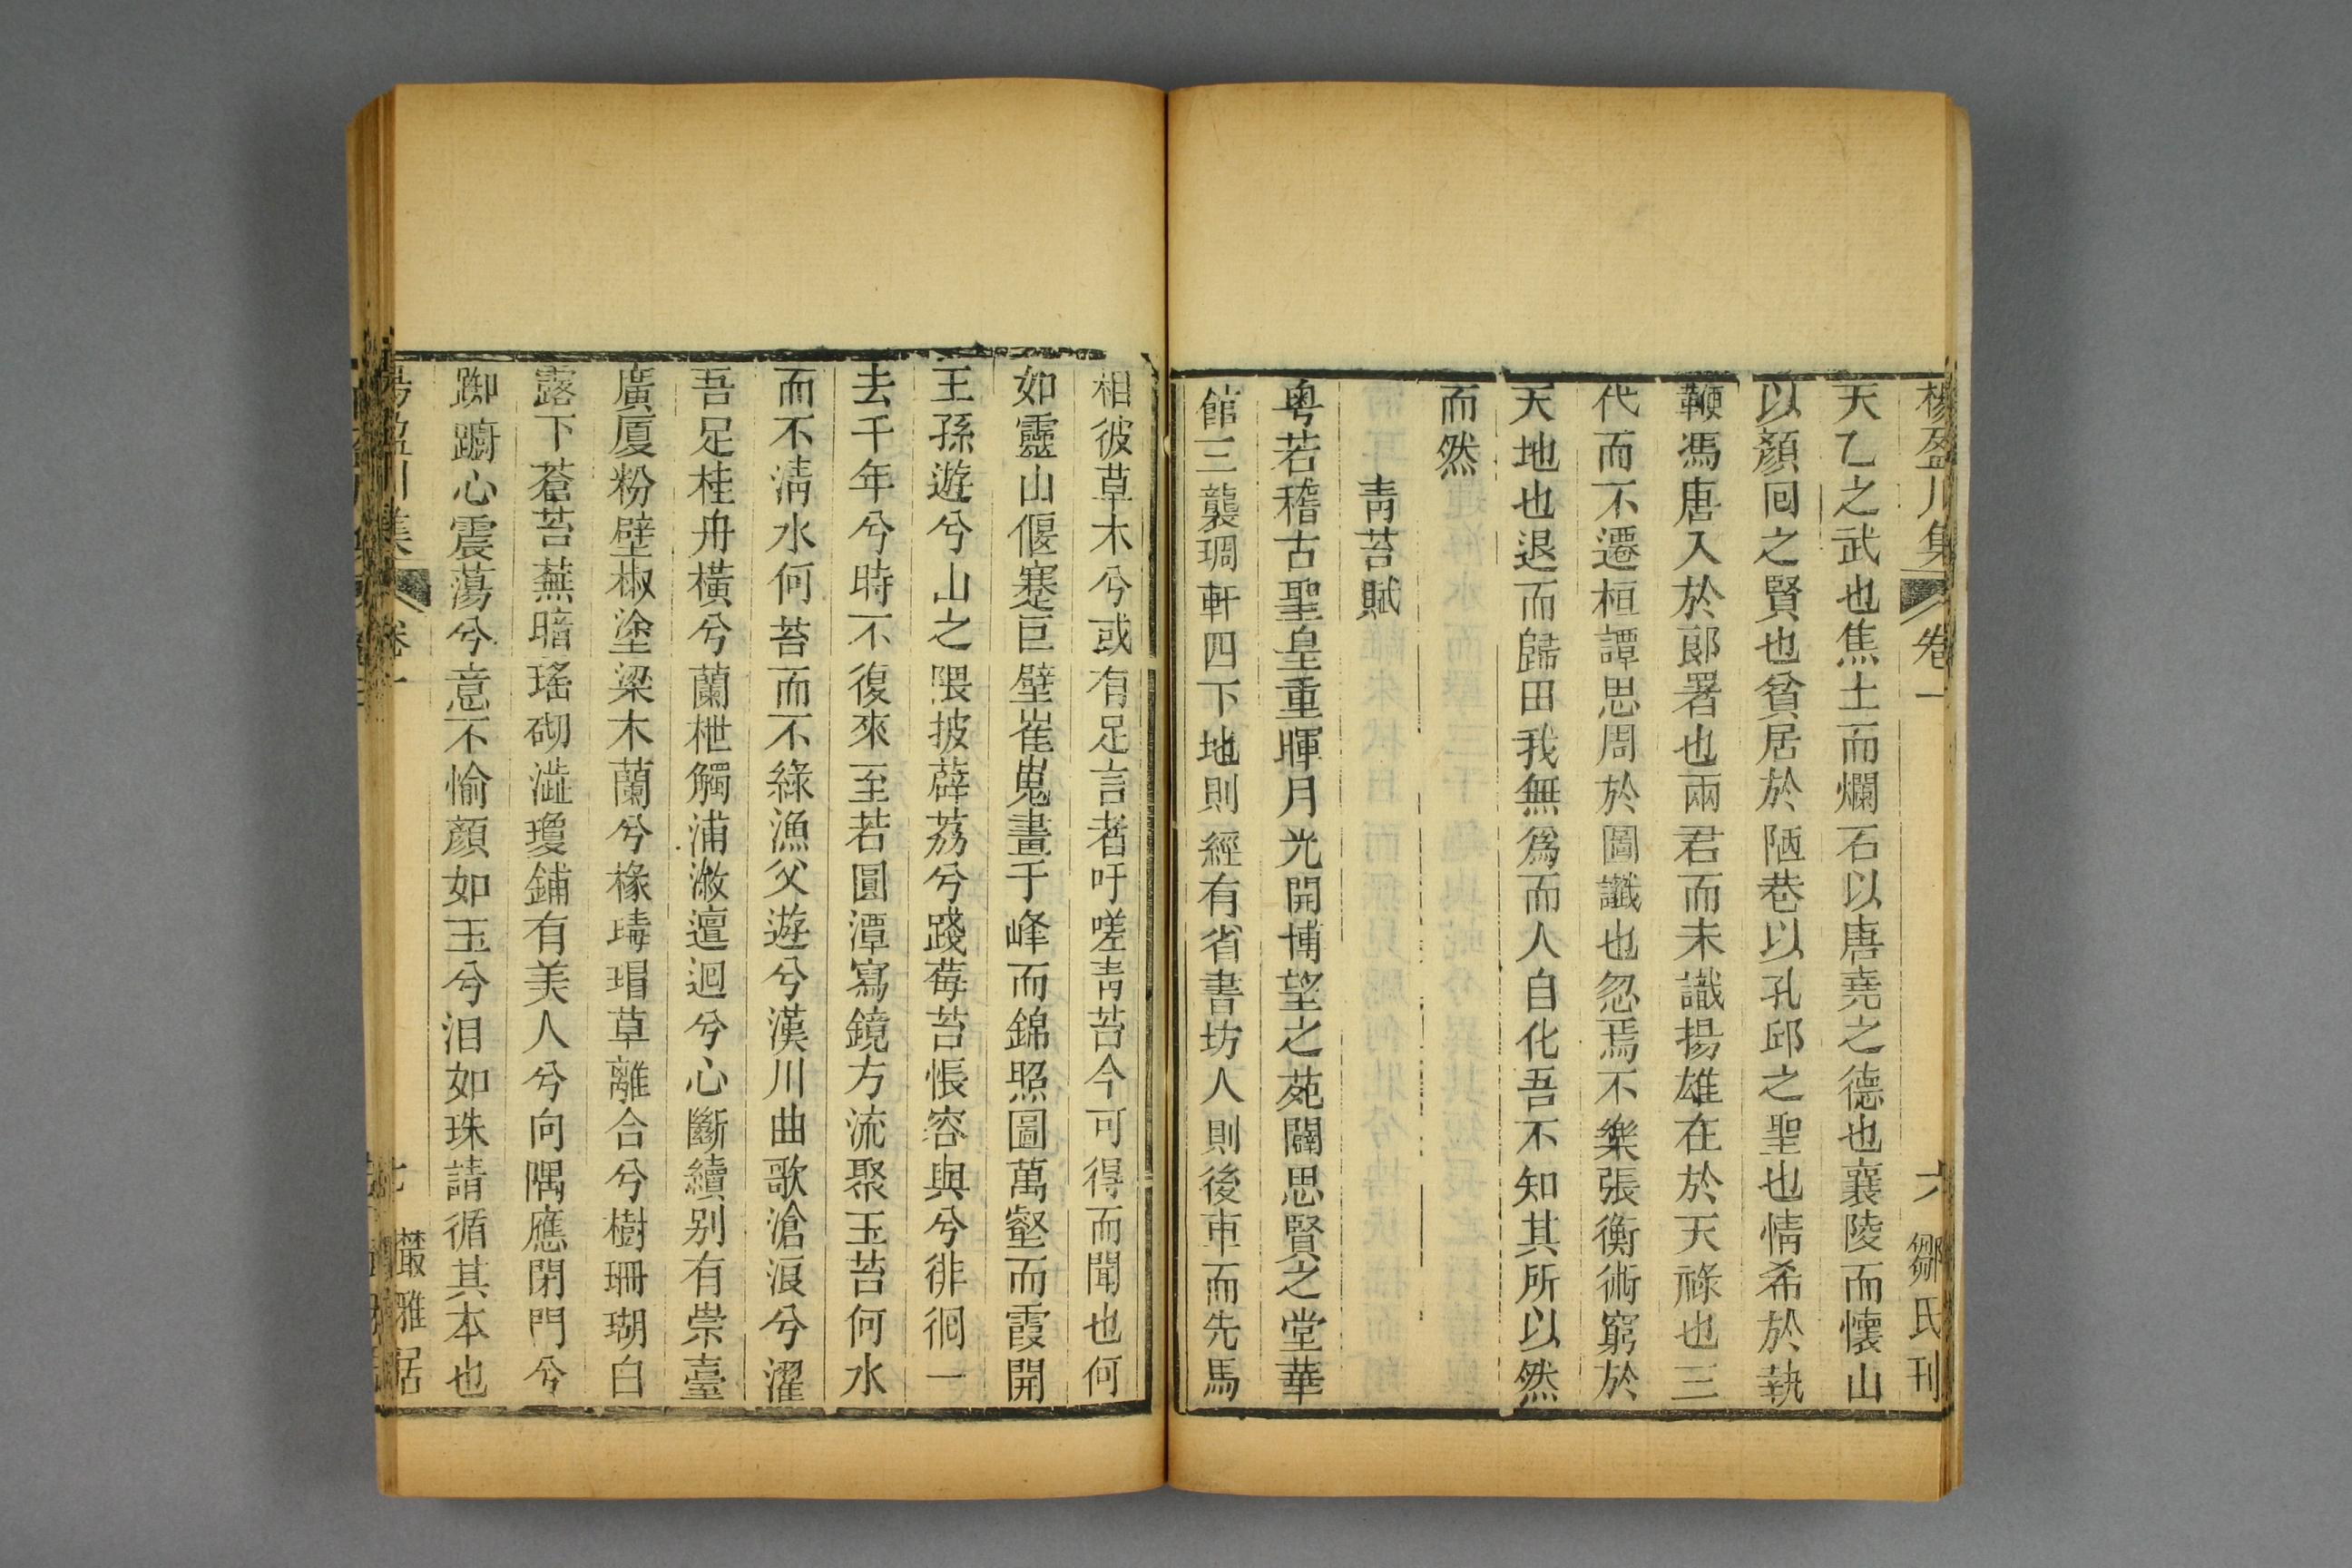 楊盈川集 卷一 六 鄒氏刊
天乙之武也焦土而爛石以唐堯之德也襄陵而懷山
以顏回之賢也貧居於陋巷以孔邱之聖也情希於執
鞭馮唐入於郞署也兩君而未識揚雄在於天祿也三
代而不遷桓譚思周於圖讖也忽焉不樂張衡術窮於
天地也退而歸田我無爲而人自化吾不知其所以然
而然
靑苔賦
粤若稽古聖皇重暉月光開博望之苑闢思賢之堂華
館三襲琱軒四下地則經有省書坊人則後車而先馬
相彼草木兮或有足言者吁嗟靑苔今可得而聞也何
如靈山偃蹇巨壁崔嵬畫千峰而錦照圖萬壑而霞開
王孫遊兮山之隈披薜荔兮踐莓苔悵容與兮徘徊一
去千年兮時不復來至若圓潭寫鏡方流聚玉苔何水
而不淸水何苔而不綠漁父遊兮漢川曲歌滄浪兮濯
吾足桂舟橫兮蘭枻觸浦漵邅迴兮心斷續别有崇臺
廣厦粉壁椒塗梁木蘭兮橑瑇瑁草離合兮樹珊瑚白
露下蒼苔蕪暗瑤砌澁瓊鋪有美人兮向隅應閉門兮
踟躕心震蕩兮意不愉顏如玉兮泪如珠請循其本也
楊盈川集 卷一 七 叢雅居